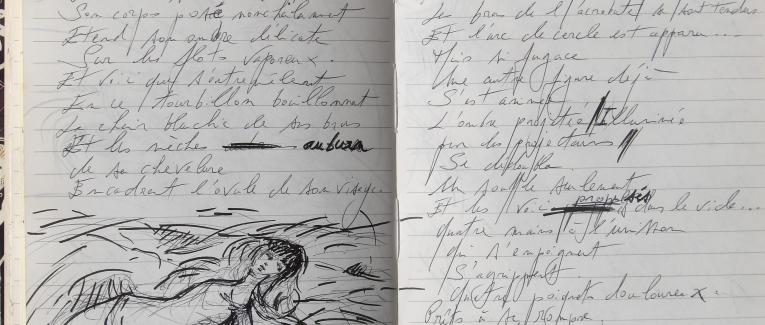 Son corps posé nonchalamment
Etend son ombre délicate
Sur les flots vaporeux.
Et voici que s'entremêlent
En ce tourbillon bouillonnant
La chair blanche de ses bras
Et les mèches auburn
de sa chevelure
Encadrant l'ovale de son visage
Les bras de l'acrobate se sont tendus
Et l'arc de cercle est apparu...
Mais si fugace
Une autre figure déjà
S'est animée
L'ombre projetée Illuminée
par les projecteurs
Se dédoubla
Un souffle seulement
Et les voici propulsés dans le vide...
quatre mains à l'unisson
qui s'empoignent
S'agrippent.
Quatre poignets douloureux.
Prêts à se rompre.